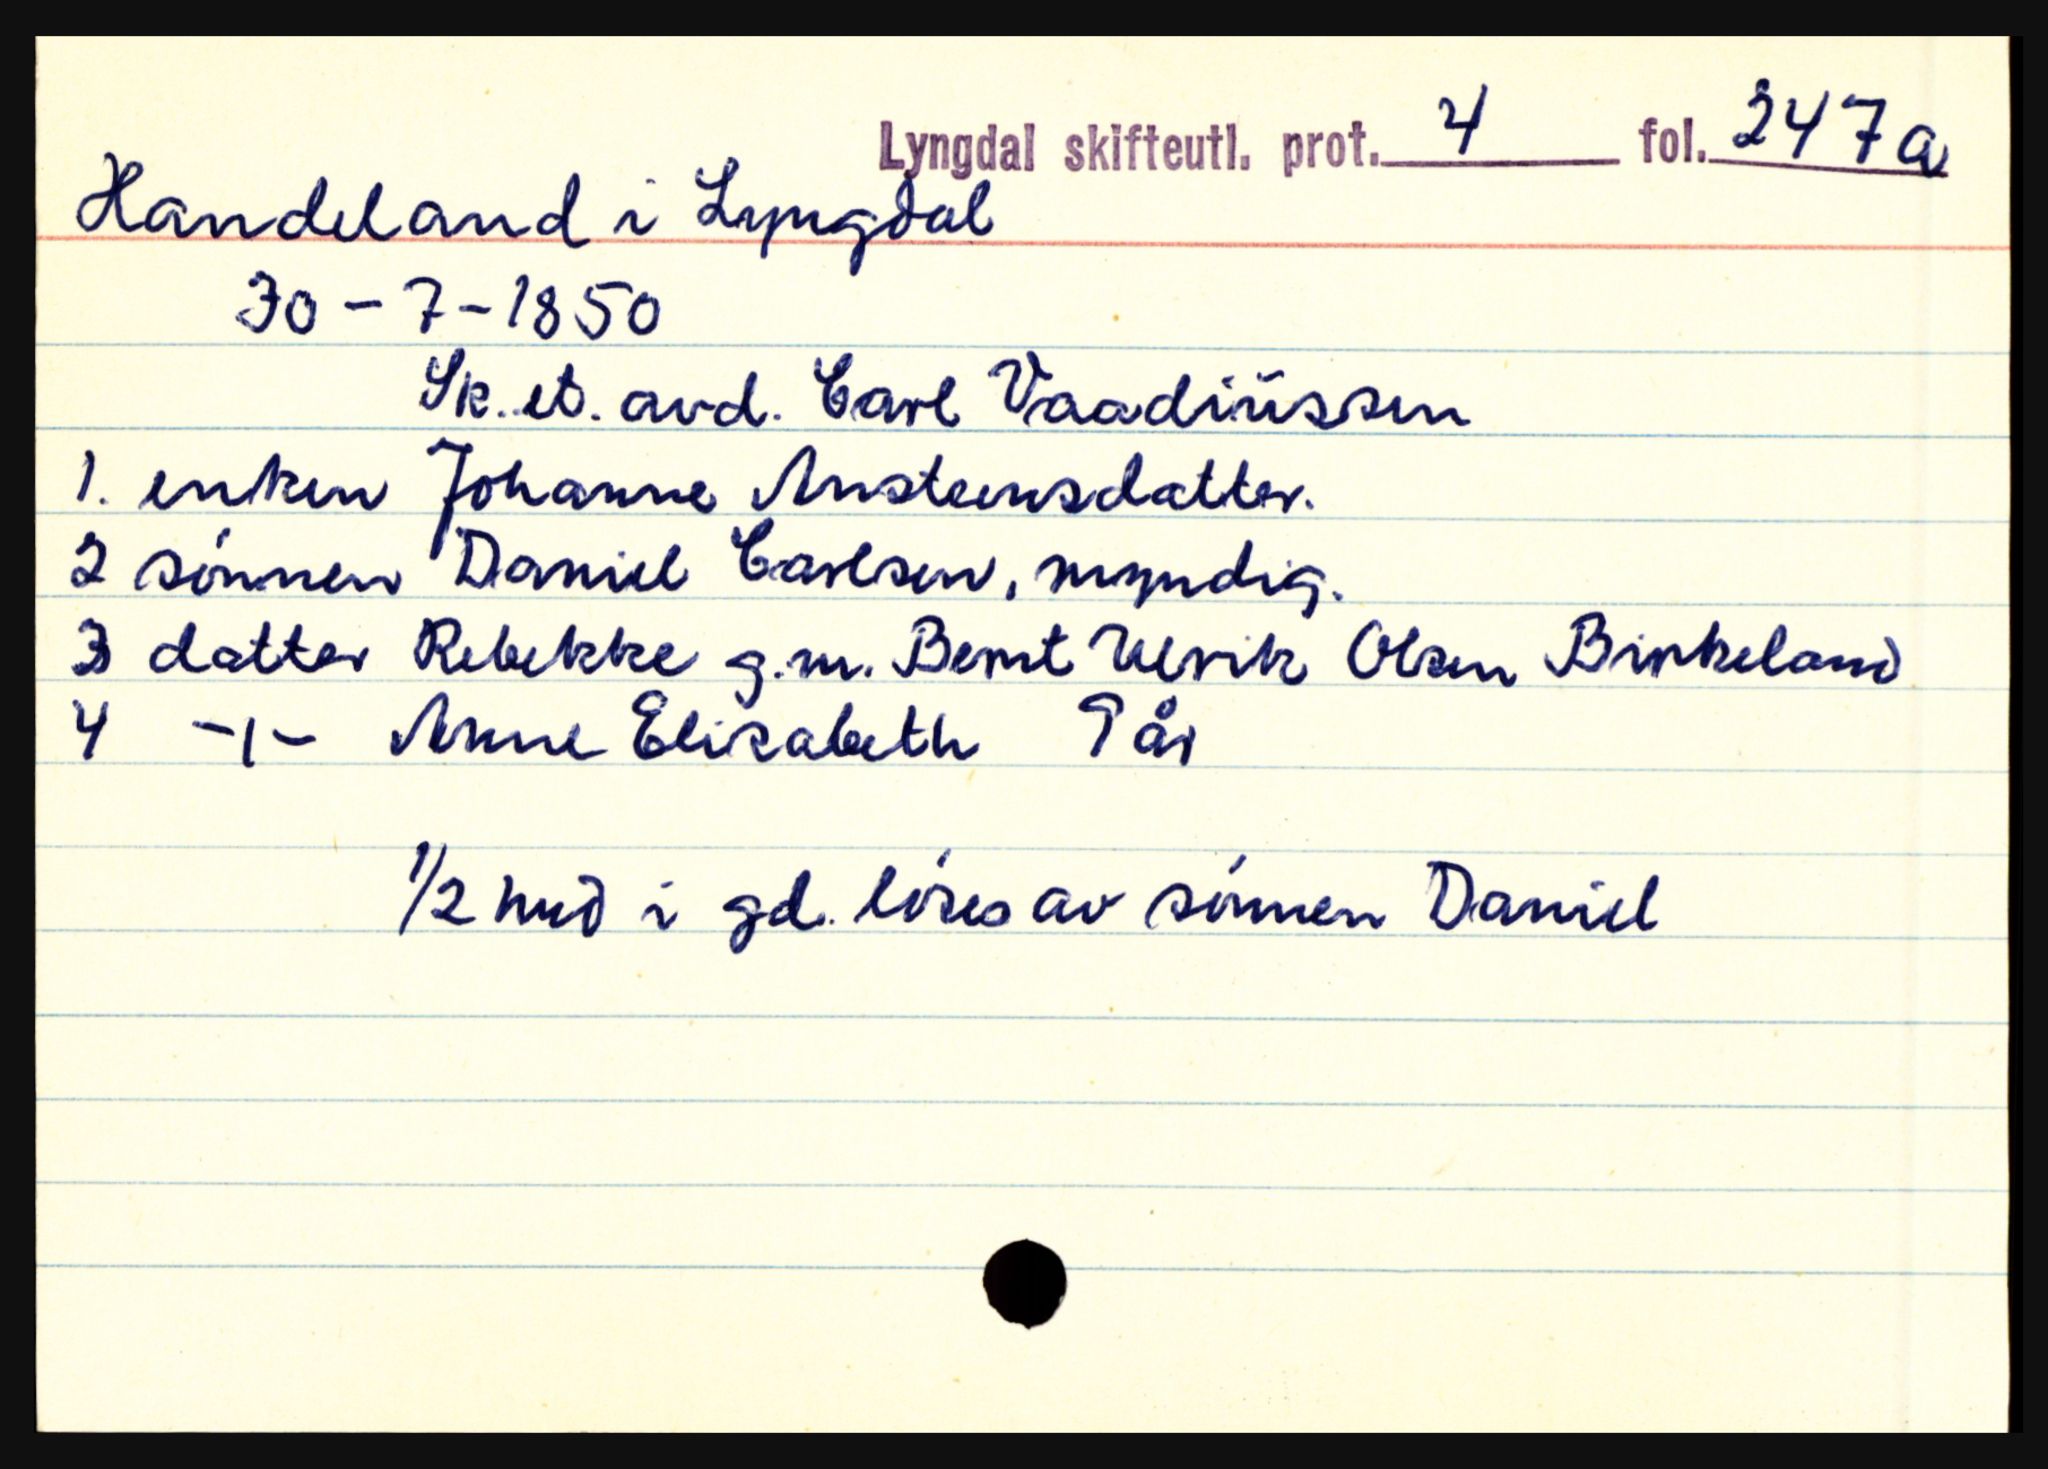 Lyngdal skifteutl. prot. 4 fol. 247a
Handeland i Lyngdal
30-7-1850
Sk. et. avd. Carl Vaadiüssen
1. enken Johanne Ansteensdatter.
2 sónnen Daniel Carlsen, myndig.
3 datter Rebekke g.m. Bernt Ulrik Olsen Birkeland
4 -1- Anne Elisabeth 9 år
1/2 hud i gd. lóses av sónnen Daniel